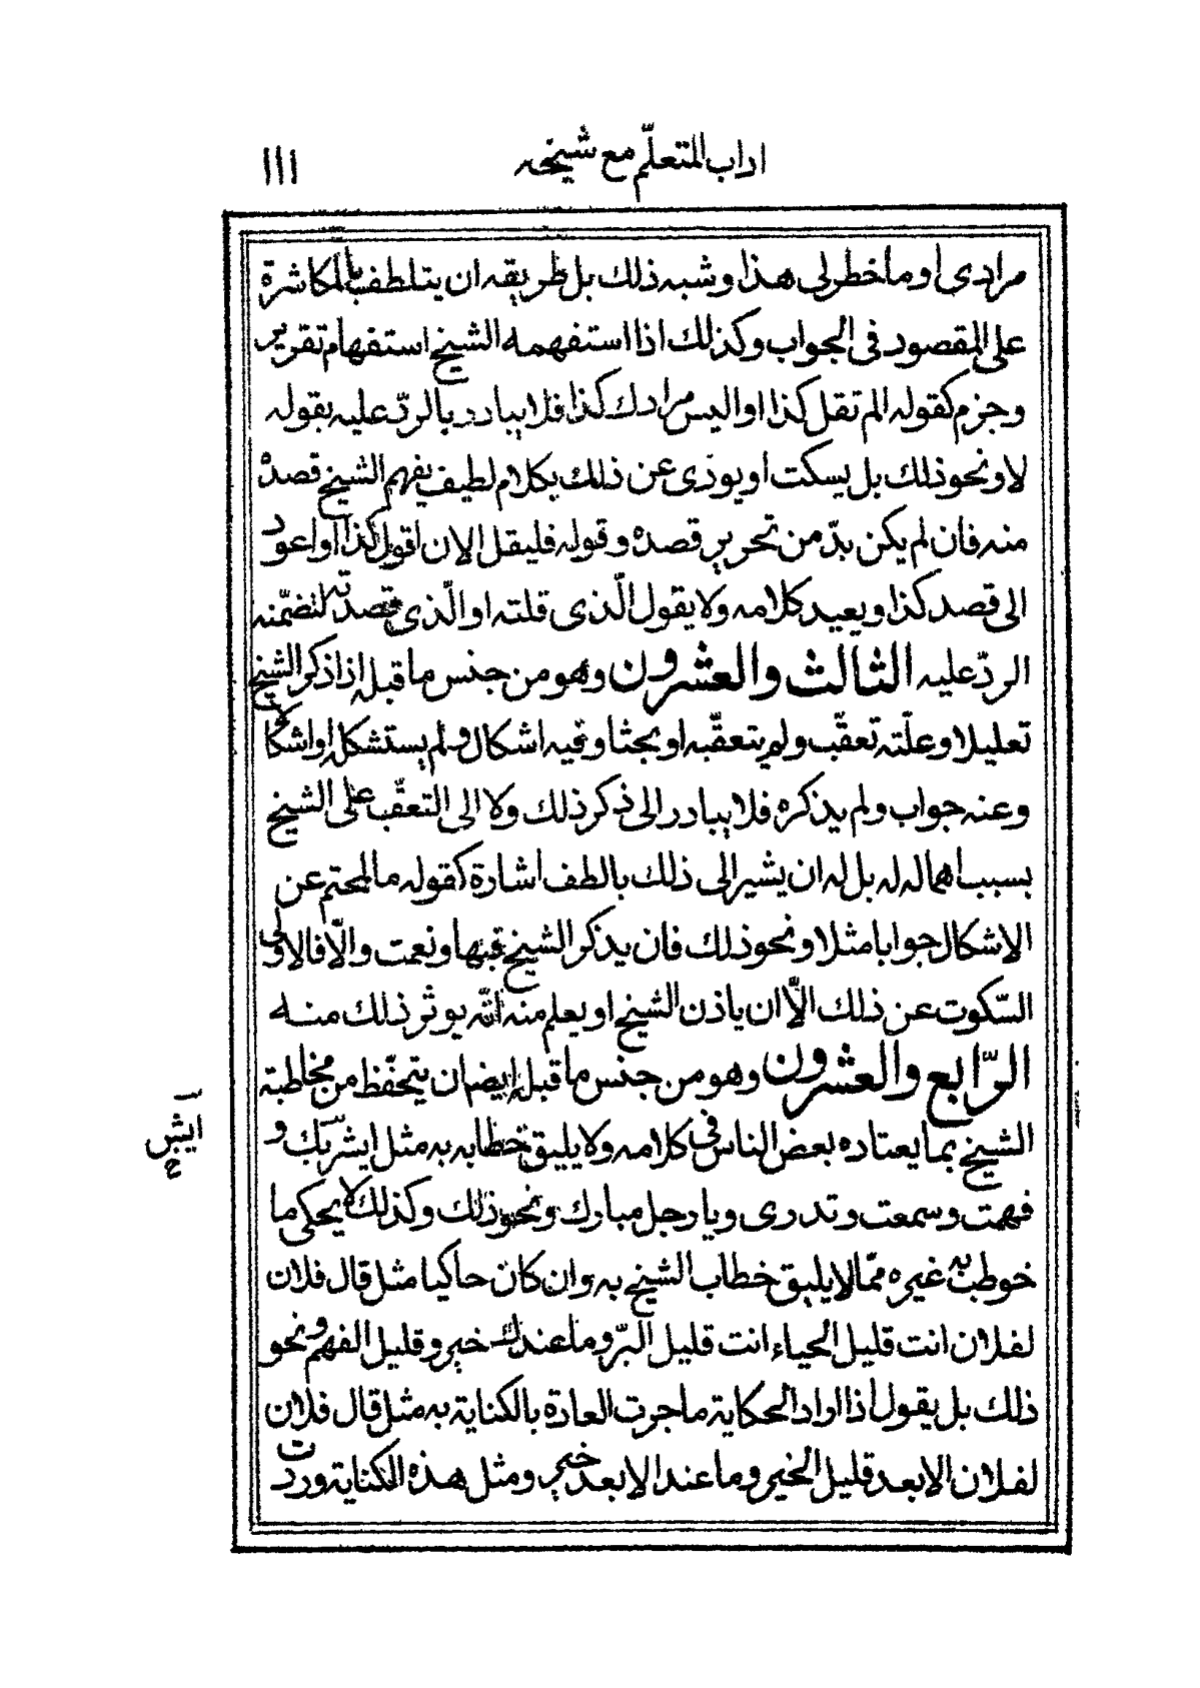 اداب المتعلّم مع شيخه
١١١
مرادى او ما خطر لى هذا وشبه ذلك بل طريقه ان يتلطف بالمكاشرة
على المقصود فى الجواب وكذلك اذا استفهمه الشيخ استفهام تقرير
وجزم كقوله الم تقل كذا او اليس مرادك كذا فلا يبادر بالردّ عليه بقوله
لا ونحو ذلك بل يسكت او يورى عن ذلك بكلام لطيف يفهم الشيخ قصده
منه فان لم يكن بدّ من تحرير قصده وقوله فليقل الان اقول كذا او اعود
الى قصد كذا ويعيد كلامه ولا يقول الّذى قلته او الّذى قصدته لتضمّنه
الردّ عليه الثالث والعشرون وهو من جنس ما قبله اذا ذكر الشيخ
تعليلا وعلّته تعقّب ولم يتعقّبه او بحثا وفيه اشكال ولم يستشكله او اشكالا
وعنه جواب ولم يذكره فلا يبادر الى ذكر ذلك ولا الى التعقّب على الشيخ
بسبب اهماله له بل له ان يشير الى ذلك بالطف اشارة كقوله ما لمحتم عن
الاشكال جوابا مثلا ونحو ذلك فان يذكر الشيخ فبها ونعمت والّا فالاولى
السّكوت عن ذلك الّا ان ياذن الشيخ او يعلم منه انّه يوثر ذلك منه
الرّابع والعشرون وهو من جنس ما قبله ايضا ان يتحفّظ من مخاطبة
الشيخ بما يعتاده بعض الناس فى كلامه ولا يليق خطابه به مثل ايش بك و
فهمت وسمعت وتدرى ويا رجل مبارك ونحو ذلك وكذلك لا يحكى ما
خوطب به غيره ممّا لا يليق خطاب الشيخ به وان كان حاكيا مثل قال فلان
لفلان انت قليل الحياء انت قليل البرّ وما عندك خير وقليل الفهم ونحو
ذلك بل يقول اذا اراد الحكاية ما جرت العادة بالكناية به مثل قال فلان
لفلان الابعد قليل الخير وما عند الابعد خير ومثل هذه الكناية وردت
ايش
ع